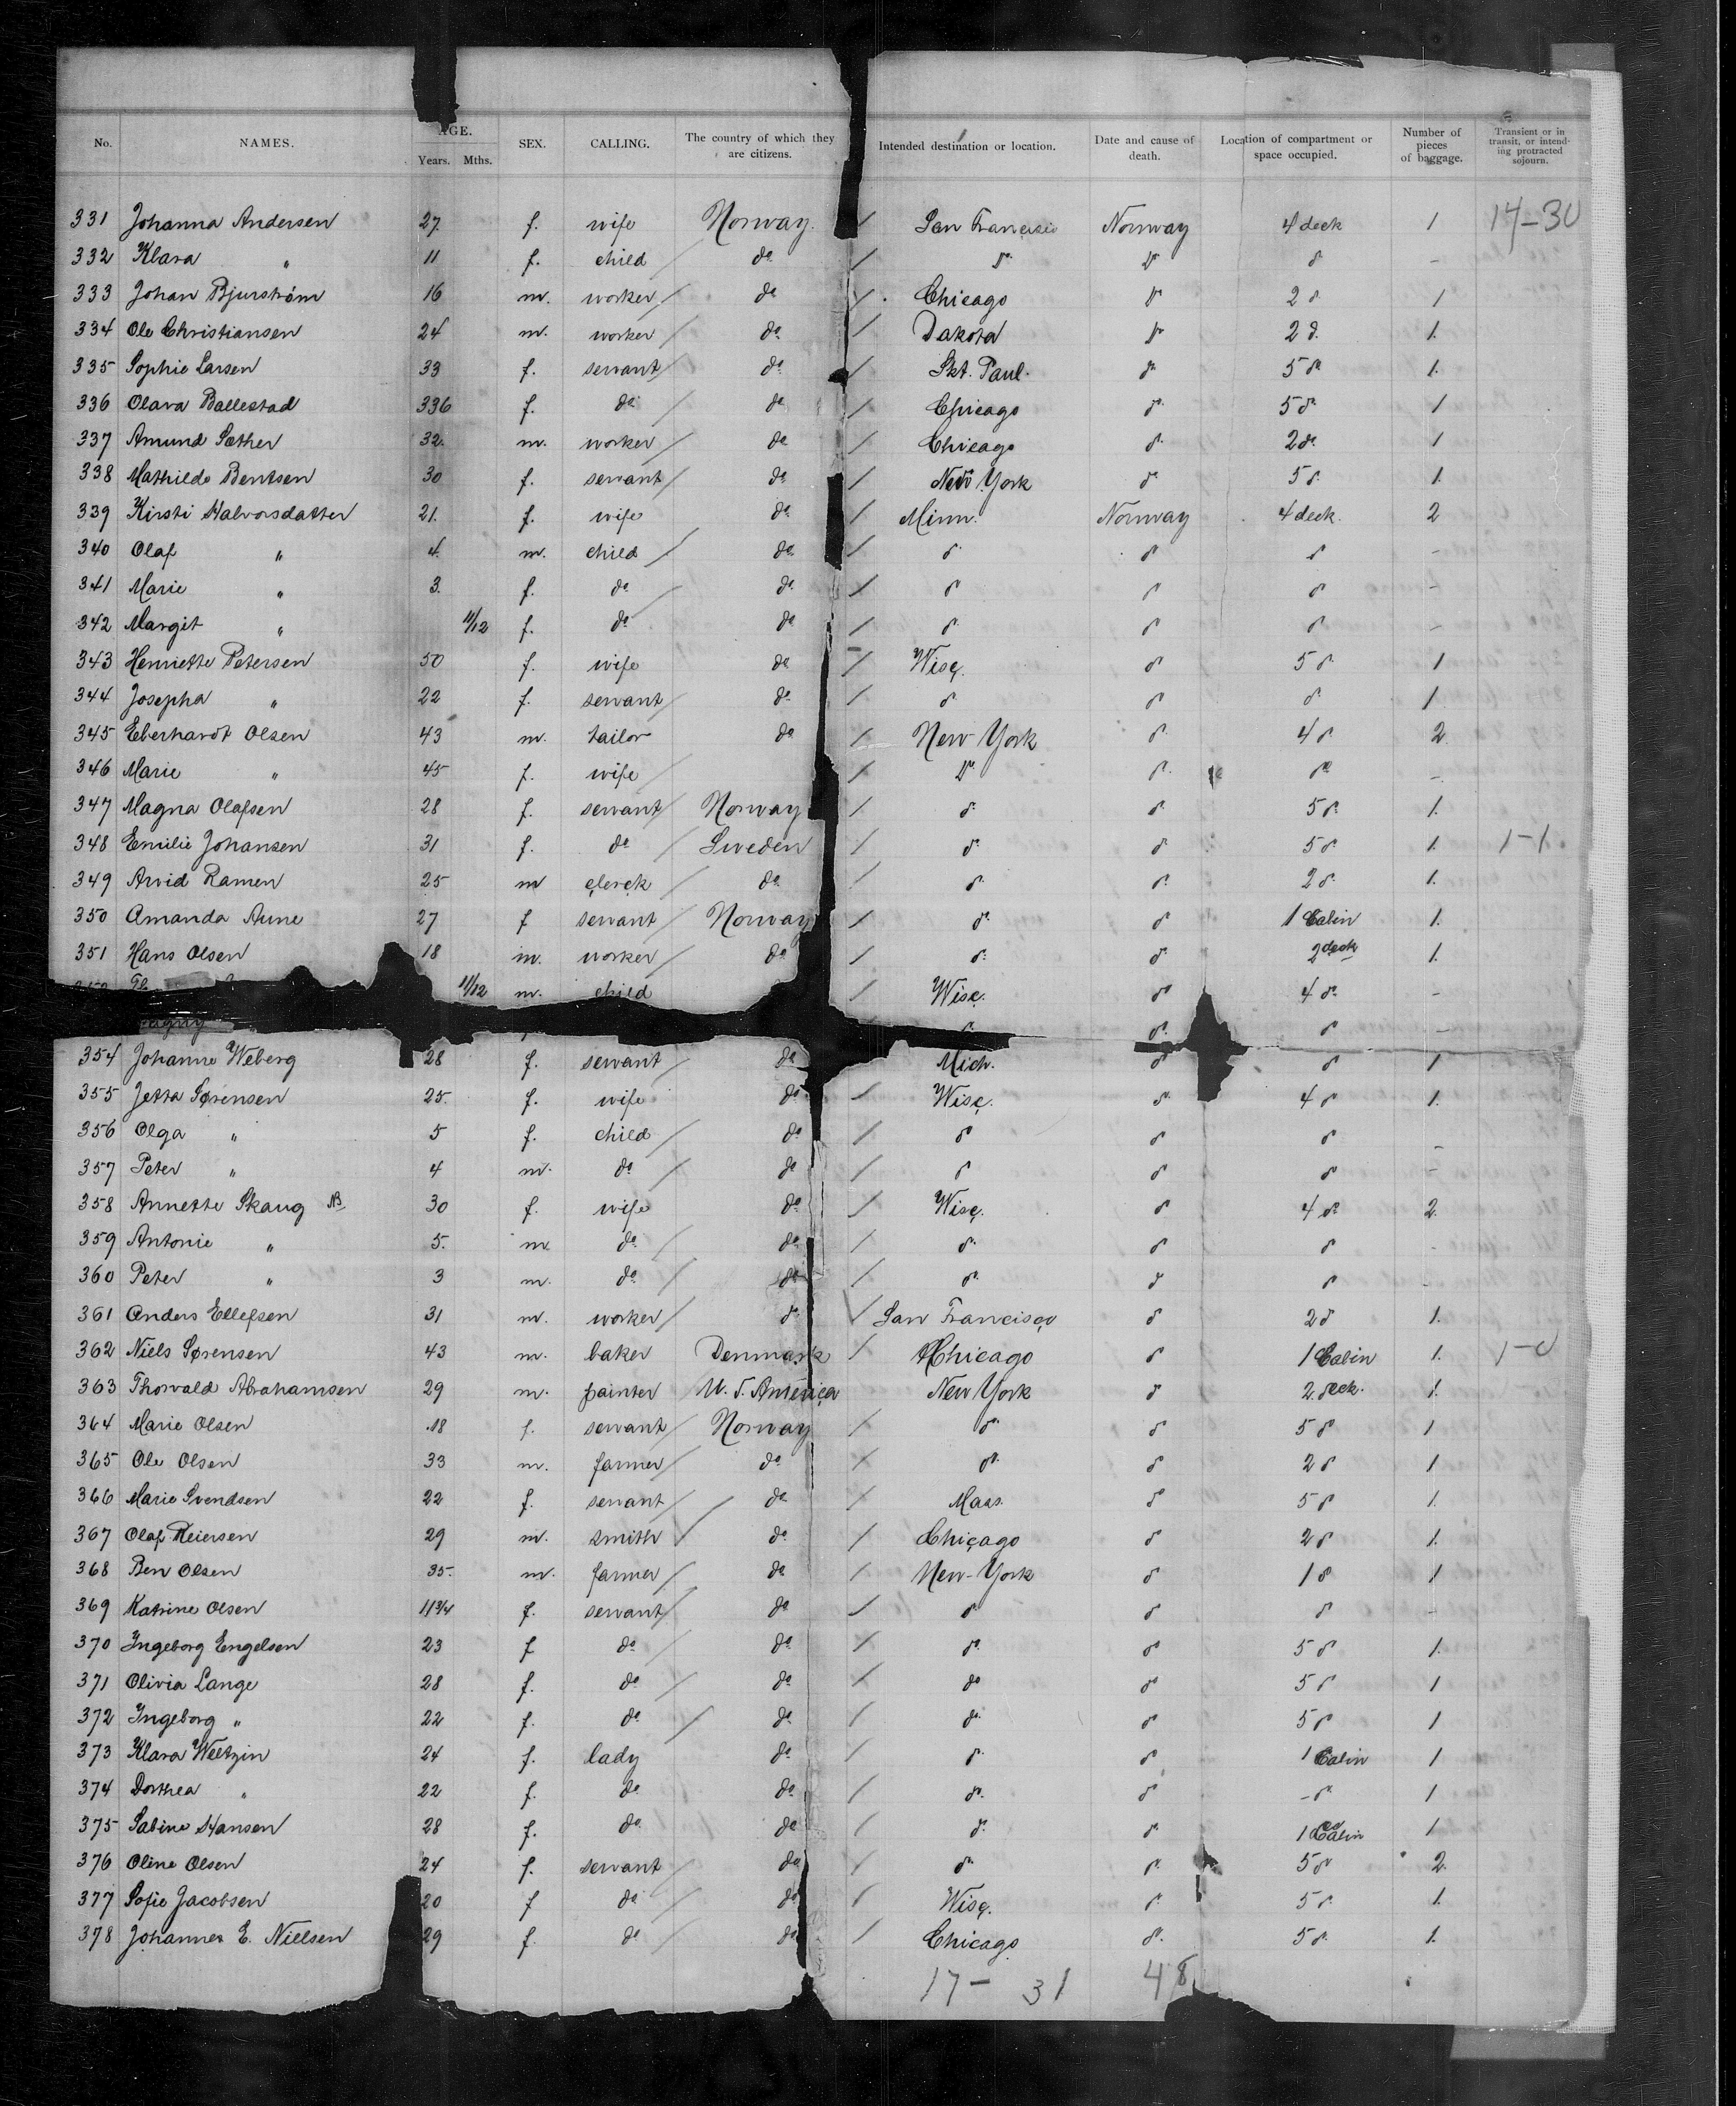 No. NAMES. AGE. Years. Mths. SEX. CALLING. The country of which they are citizens. Intended destination or location. Date and cause of death. Location of compartment or space occupied. Number of pieces of baggage. Transient or in transit, or intending protracted sojourn.
331 Johanna Andersen 27. f. wife Norway. / San Francisco Norway 4 deck 1 14-30
332 Klara " 11 f. child / do / do do do -
333 Johan Bjurström 16 m. worker / do / Chicago do 2 do 1
334 Ole Christiansen 24 m. worker / do / Dakota do 2 do 1.
335 Sophie Larsen 33 f. servant / do / Skt. Paul. do 5 do 1.
336 Olava Ballestad 336 f. do / do / Chicago do 5 do 1
337 Amund Sæther 32. m. worker / do / Chicago do 2 do 1
338 Mathilde Bentsen 30 f. servant / do / New York do 5 do 1.
339 Kirsti Halvorsdatter 21. f. wife do / Minn. Norway 4 deck. 2
340 Olaf " 4. m. child / do / do do do -
341 Marie " 3. f. do / do / do do do -
342 Margit " 11/12 f. do / do / do do do -
343 Henriette Petersen 50 f. wife do / Wisc. do 5 do 1
344 Josepha " 22 f. servant / do / do do do 1.
345 Eberhardt Olsen 43 m. tailor do / New York do 4 do 2.
346 Marie " 45 f. wife / do do do -
347 Magna Olafsen 28 f. servant / Norway / do do 5 do 1.
348 Emilie Johansen 31 f. do / Sweden / do do 5 do 1. 1-1.
349 Arvid Ramen 25 m clerck / do / do do 2 do 1.
350 Amanda Aune 27 f servant / Norway / do do 1 Cabin 1.
351 Hans Olsen 18 m. worker / do / do do 2 deck 1.
11/12 m. child / Wisc. do 4 do -
do do do -
354 Johanne Weberg 28 f. servant / do Mich. do do 1
355 Jetta Sørensen 25. f. wife do / Wisc. do 4 do 1.
356 Olga " 5 f. child / do / do do do -
357 Peter " 4 m. do / do / do do do -
358 Annette Skaug NB 30 f. wife do / Wisc. do 4 do 2.
359 Antonie " 5. m. do / do / do do do -
360 Peter " 3 m. do / do / do do do -
361 Anders Ellefsen 31 m. worker / do / San Francisco do 2 do 1.
362 Niels Sørensen 43 m. baker Denmark / Chicago do 1 Cabin 1. 1-0
363 Thorvald Abrahamsen 29 m. painter U. S. America New York do 2. deck. 1.
364 Marie Olsen 18 f. servant / Norway / do do 5 do 1
365 Ole Olsen 33 m. farmer / do / do do 2 do 1
366 Marie Svendsen 22 f. servant / do / Mass. do 5 do 1.
367 Olaf Meiersen 29 m. smith / do / Chicago do 2 do 1.
368 Ben Olsen 35. m. farmer / do / New-York do 1 do 1
369 Katrine Olsen 11 3/4 f. servant / do / do do do -
370 Ingeborg Engelsen 23 f do / do / do do 5 do 1.
371 Olivia Lange 28 f. do / do / do do 5 do 1
372 Ingeborg " 22 f. do / do / do do 5 do 1
373 Klara Weltzin 24 f. lady do / do do 1 Cabin 1
374 Dorthea " 22 f. do do / do. do - do 1
375 Sabine Hansen 28 f. do do / do do 1 Cabin 1
376 Oline Olsen 24 f. servant / do / do do 5 do 2.
377 Sofie Jacobsen 20 f do / do / Wisc. do 5 do 1.
378 Johannes E. Nielsen 29 f. do / do / Chicago do 5 do 1.
17- 31 48